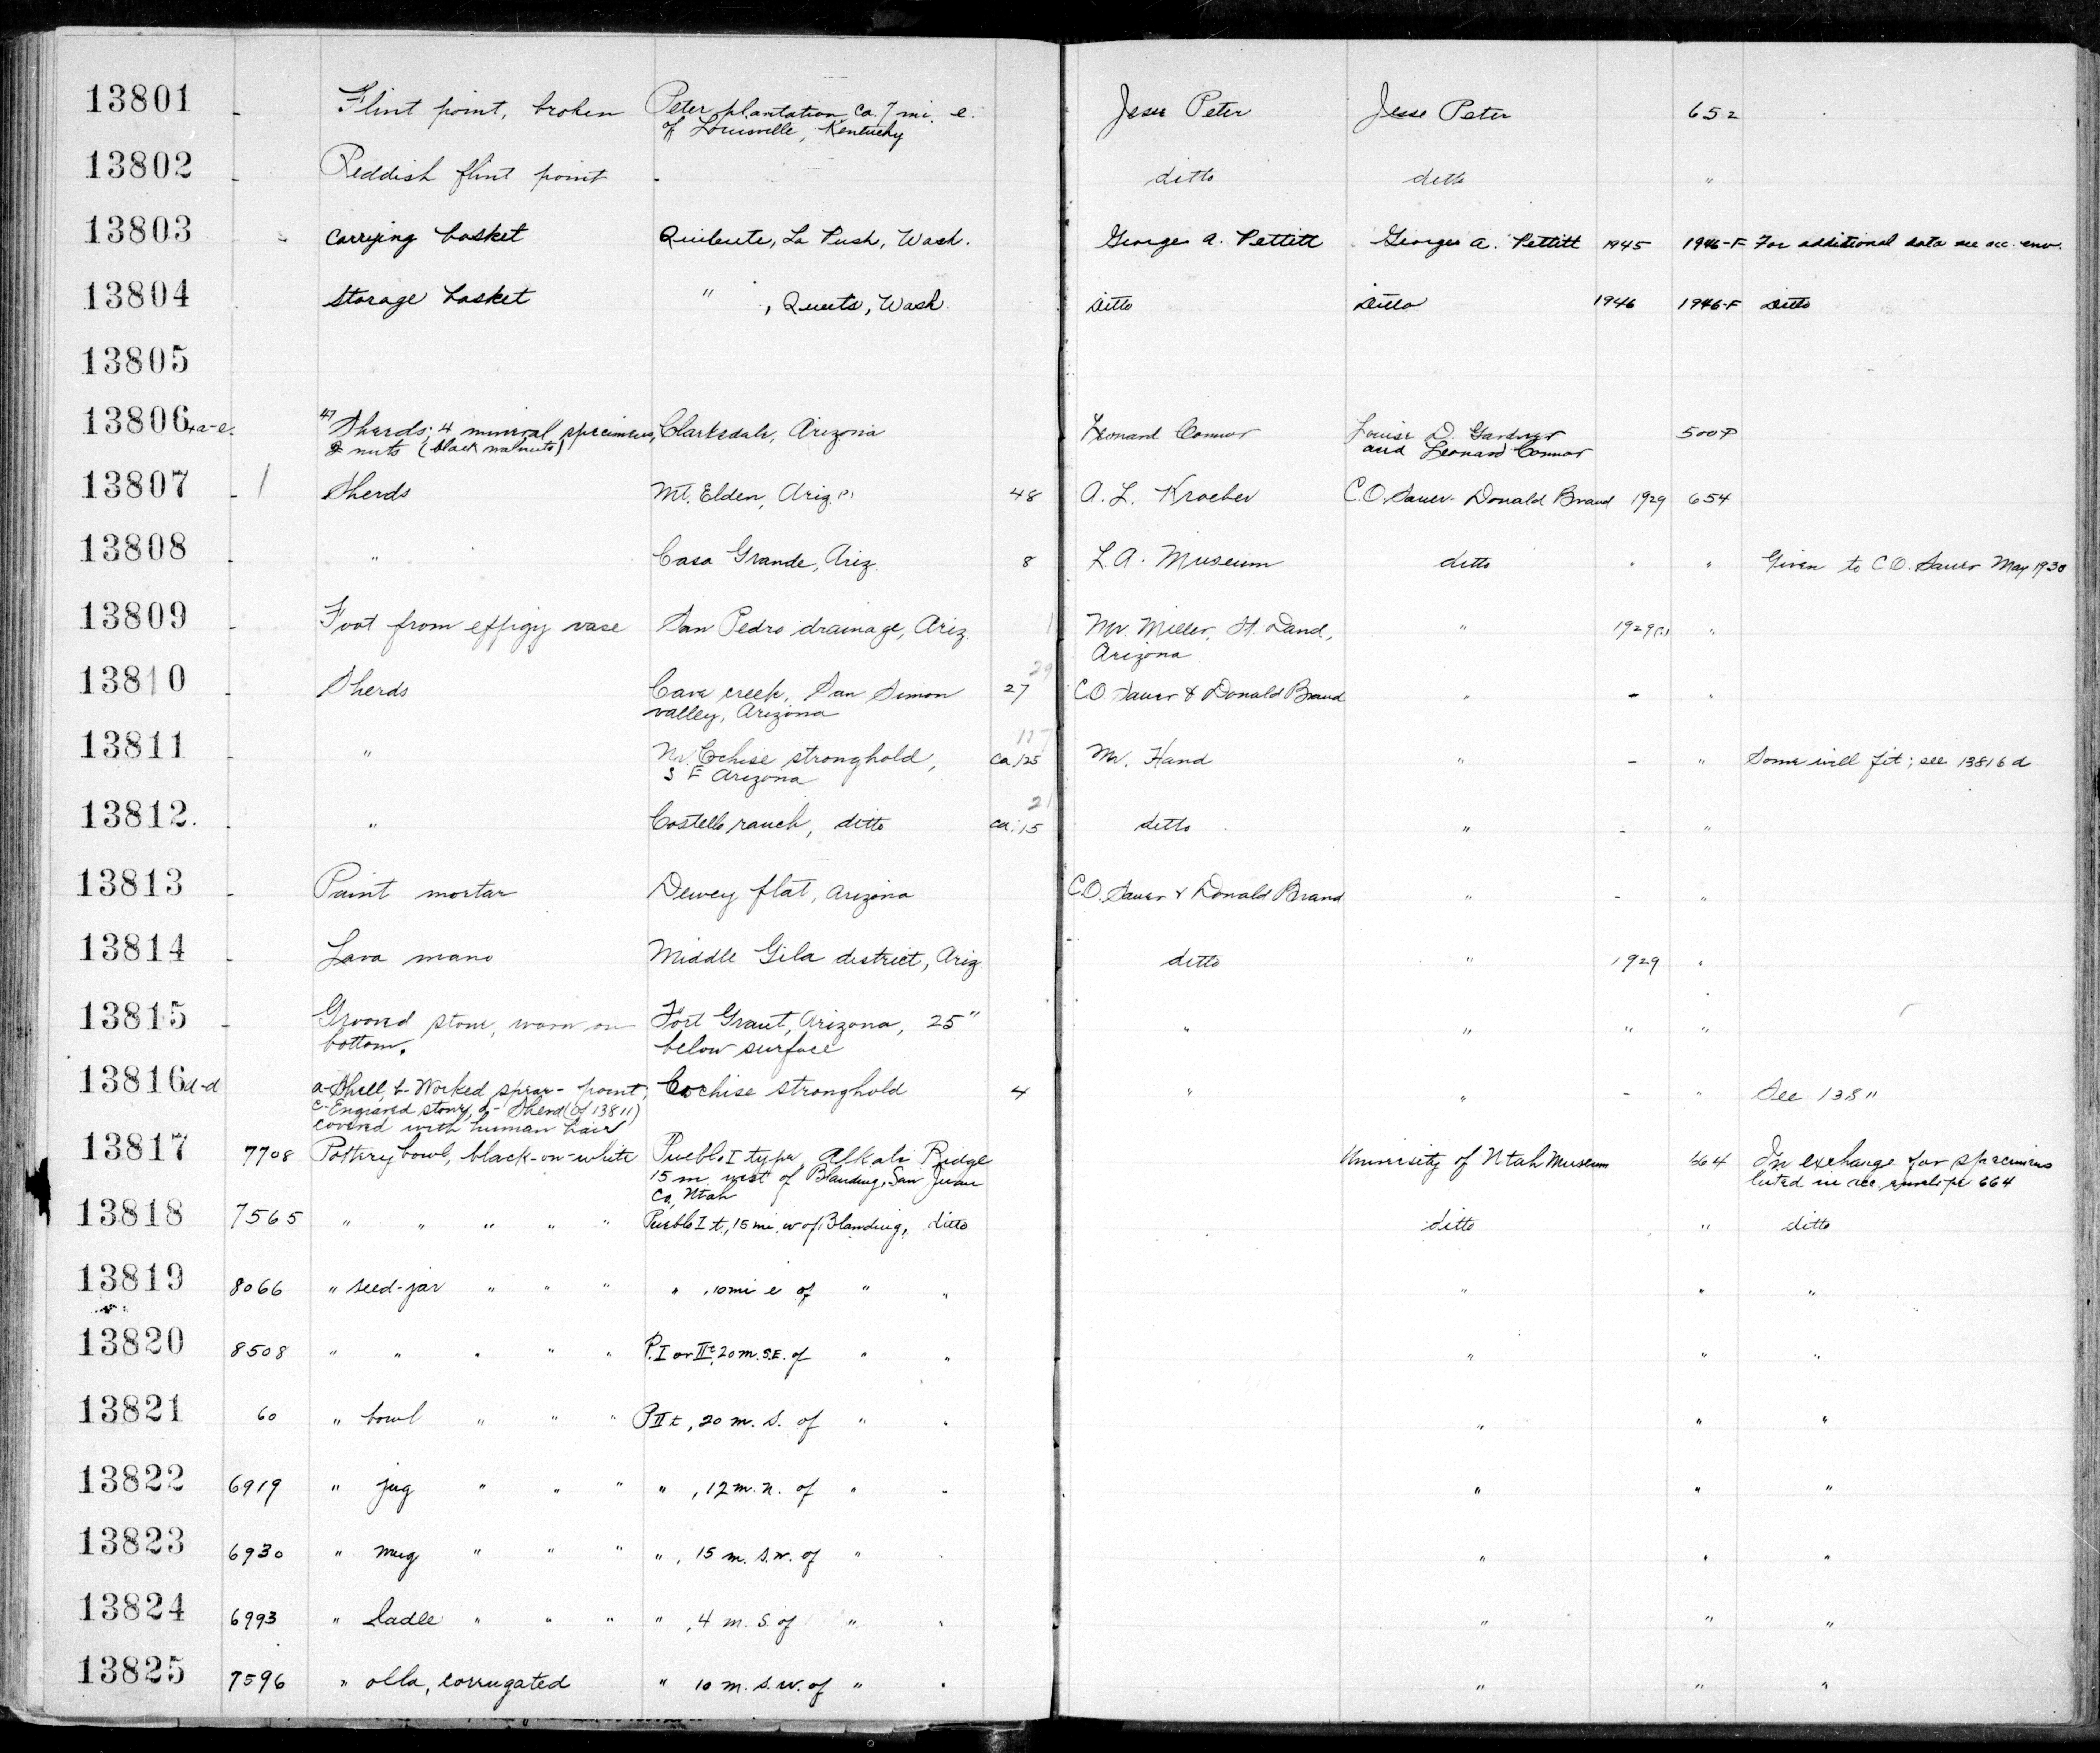 13801 - Flint point, broken Peter plantation, ca. 7 mi. e. Jesse Peter Jesse Peter 652
of Louisville, Kentucky
13802 - Reddish flint point - ditto ditto "
13803 Carrying basket Quileute, La Push, Wash. George A. Pettitt George A. Pettitt 1945 1946-F For additional data see acc. env.
13804 Storage basket " , Queets, Wash. Ditto Ditto 1946 1946-F Ditto
13805
13806 a-e. 47 Sherds; 4 mineral specimens, Clarksdale, Arizona Leonard Connor Louise D. Gardner 500
2 nuts (black walnuts) and Leonard Connor
13807 - 1 Sherds Mt. Elden, Ariz. (?) 48 A. L. Kroeber C.O. Sauer - Donald Brand 1929 654
13808 - " Casa Grande, Ariz. 8 L.A. Museum ditto " " Given to C.O. Sauer May 1930
13809 - Foot from effigy vase San Pedro drainage, Ariz. 1 Mr. Miller, St. David, " 1929(?) "
Arizona
29
13810 - Sherds Cave creek, San Simon 27 C.O. Sauer & Donald Brand " - "
valley, Arizona
117
13811 - " Nr. Cochise stronghold, ca 125 Mr. Hand " - " Some will fit; see 13816 d
S E Arizona
21
13812. - " Costello ranch, ditto ca. 15 ditto " - "
13813 - Paint mortar Dewey flat, Arizona C.O. Sauer & Donald Brand " - "
13814 - Lava mano Middle Gila district, Ariz. ditto " 1929 "
13815 - Grooved stone, worn on Fort Grant, Arizona, 25" " " " "
bottom. below surface
13816 a-d a-Shell, b-Worked spear-point, Cochise stronghold 4 " " - " See 13811
c-Engraved stone, d- Sherd (of 13811)
covered with human hair
13817 7708 Pottery bowl, black-on-white Pueblo I type, Alkali Ridge University of Utah Museum 664 In exchange for specimens
15 m. west of Blanding, San Juan listed in acc. envelope 664
Co, Utah
13818 7565 " " " " " Pueblo I t., 15 mi. w of Blanding, ditto ditto " ditto
13819 8066 " seed-jar " " " " , 10 mi e of " " " " "
13820 8508 " " " " " P. I or II t, 20 m. S.E. of " " " " "
13821 60 " bowl " " " P II t, 20 m. S. of " " " " "
13822 6919 " jug " " " " , 12 m. n. of " " " " "
13823 6930 " mug " " " " , 15 m. s.w. of " " " " "
13824 6993 " ladle " " " " , 4 m. S. of " " " " "
13825 7596 " olla, corrugated " 10 m. s.w. of " " " " "